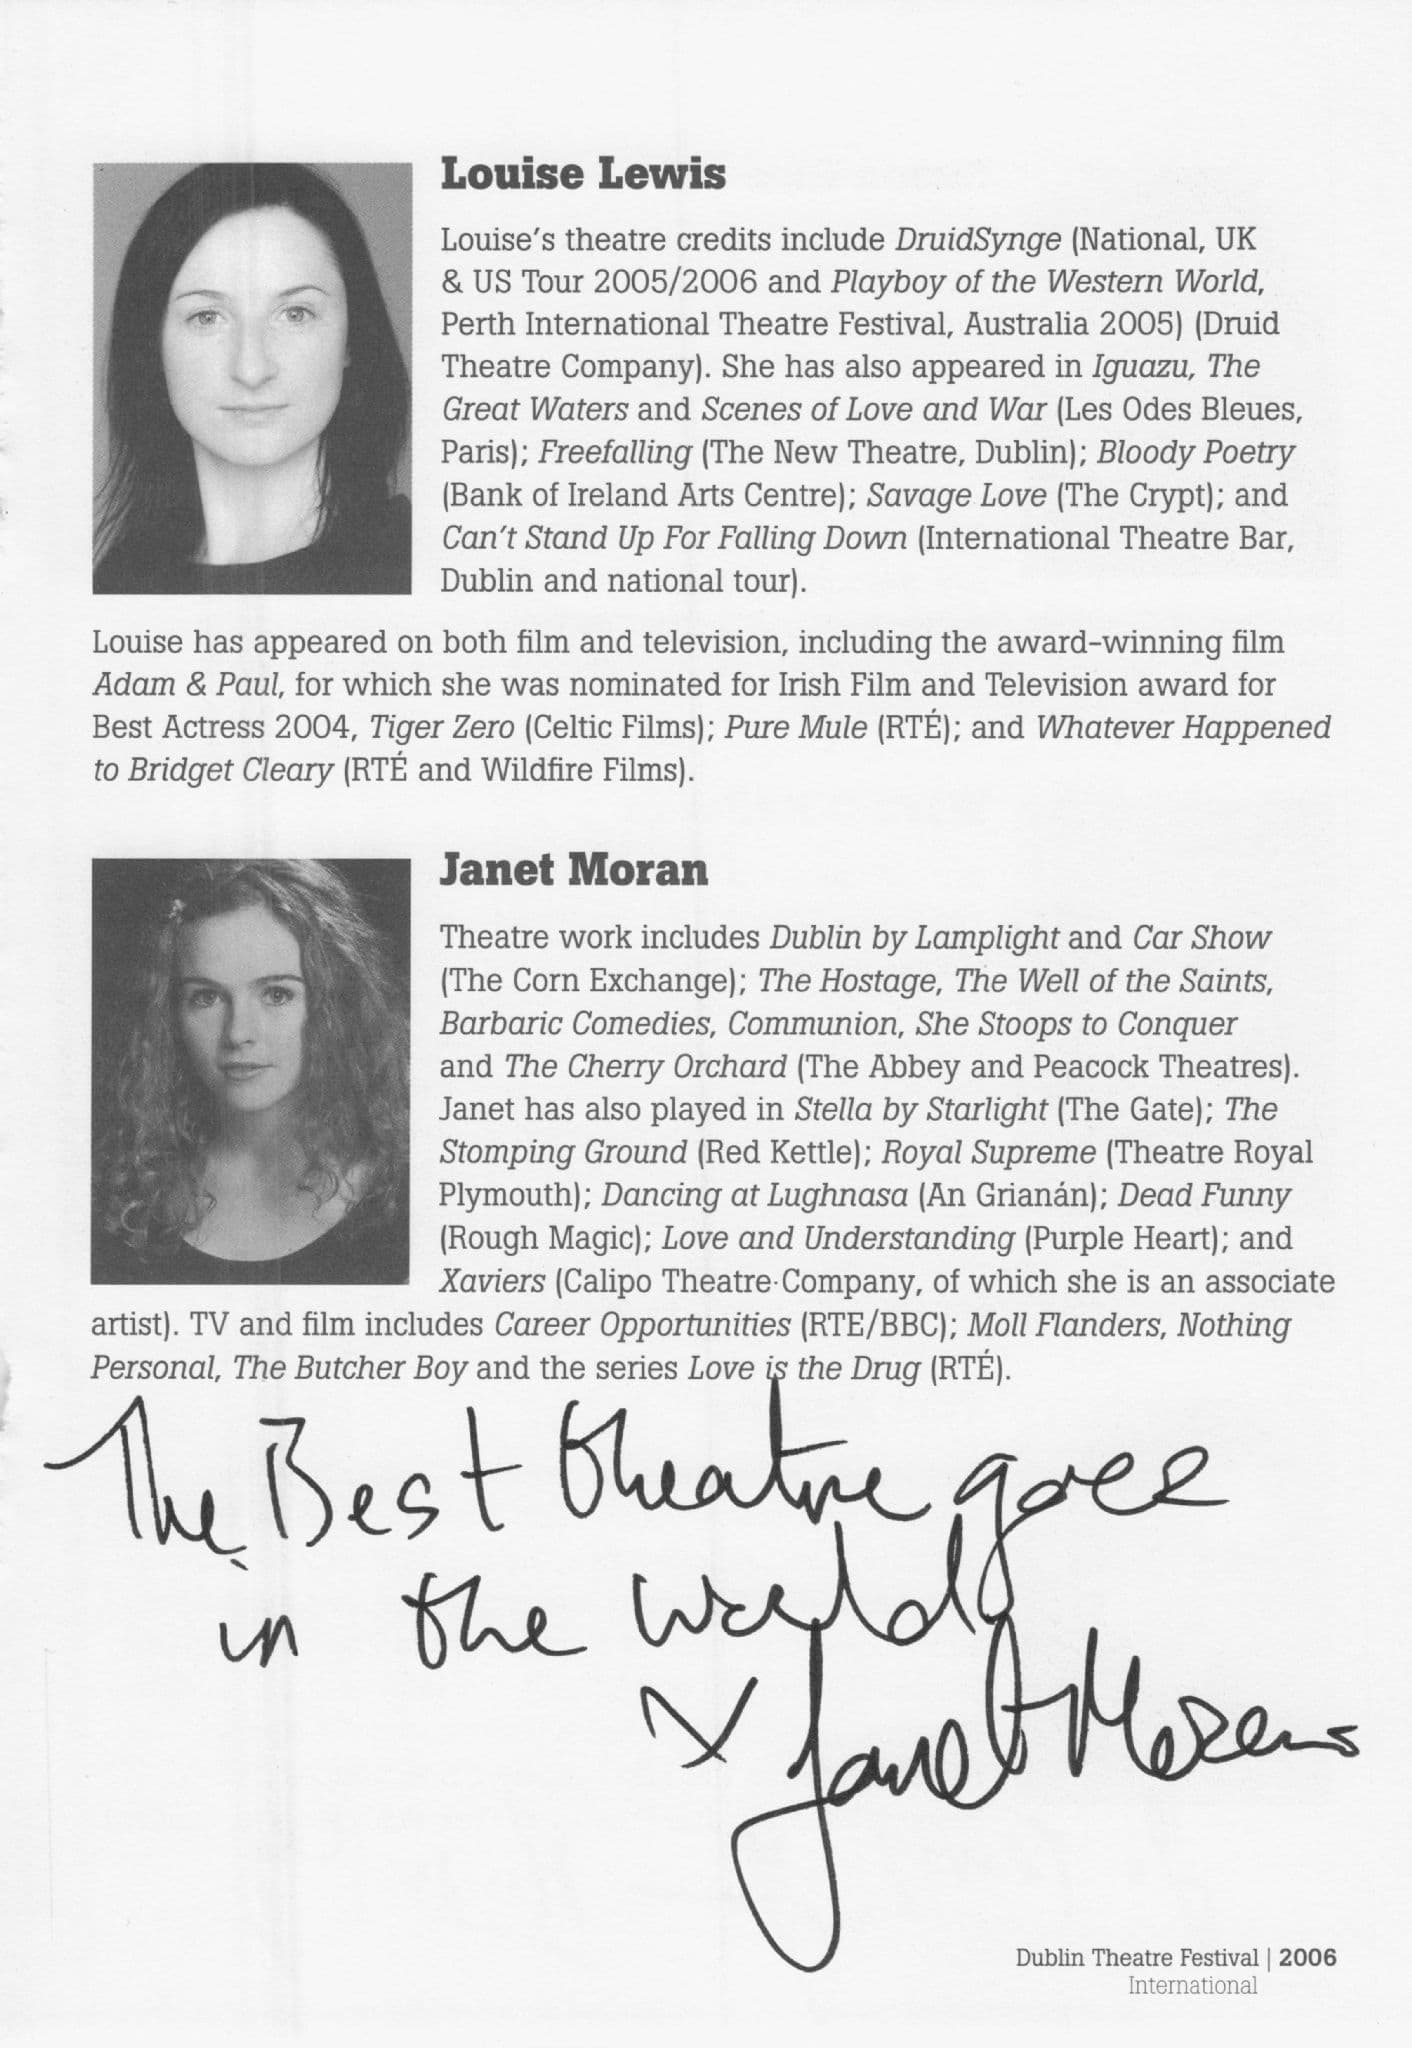 Louise Lewis
Louise's theatre credits include DruidSynge (National, UK
& US Tour 2005/2006 and Playboy of the Western World,
Perth International Theatre Festival, Australia 2005) (Druid
Theatre Company). She has also appeared in Iguazu, The
Great Waters and Scenes of Love and War (Les Odes Bleues,
Paris); Freefalling (The New Theatre, Dublin); Bloody Poetry
(Bank of Ireland Arts Centre); Savage Love (The Crypt); and
Can't Stand Up For Falling Down (International Theatre Bar,
Dublin and national tour).
Louise has appeared on both film and television, including the award-winning film
Adam & Paul, for which she was nominated for Irish Film and Television award for
Best Actress 2004, Tiger Zero (Celtic Films); Pure Mule (RTÉ); and Whatever Happened
to Bridget Cleary (RTÉ and Wildfire Films).
Janet Moran
Theatre work includes Dublin by Lamplight and Car Show
(The Corn Exchange); The Hostage, The Well of the Saints,
Barbaric Comedies, Communion, She Stoops to Conquer
and The Cherry Orchard (The Abbey and Peacock Theatres).
Janet has also played in Stella by Starlight (The Gate); The
Stomping Ground (Red Kettle); Royal Supreme (Theatre Royal
Plymouth); Dancing at Lughnasa (An Grianán); Dead Funny
(Rough Magic); Love and Understanding (Purple Heart); and
Xaviers (Calipo Theatre Company, of which she is an associate
artist). TV and film includes Career Opportunities (RTE/BBC); Moll Flanders, Nothing
Personal, The Butcher Boy and the series Love is the Drug (RTÉ).
The Best theatre goer
in the world
X Janet Moran
Dublin Theatre Festival | 2006
International